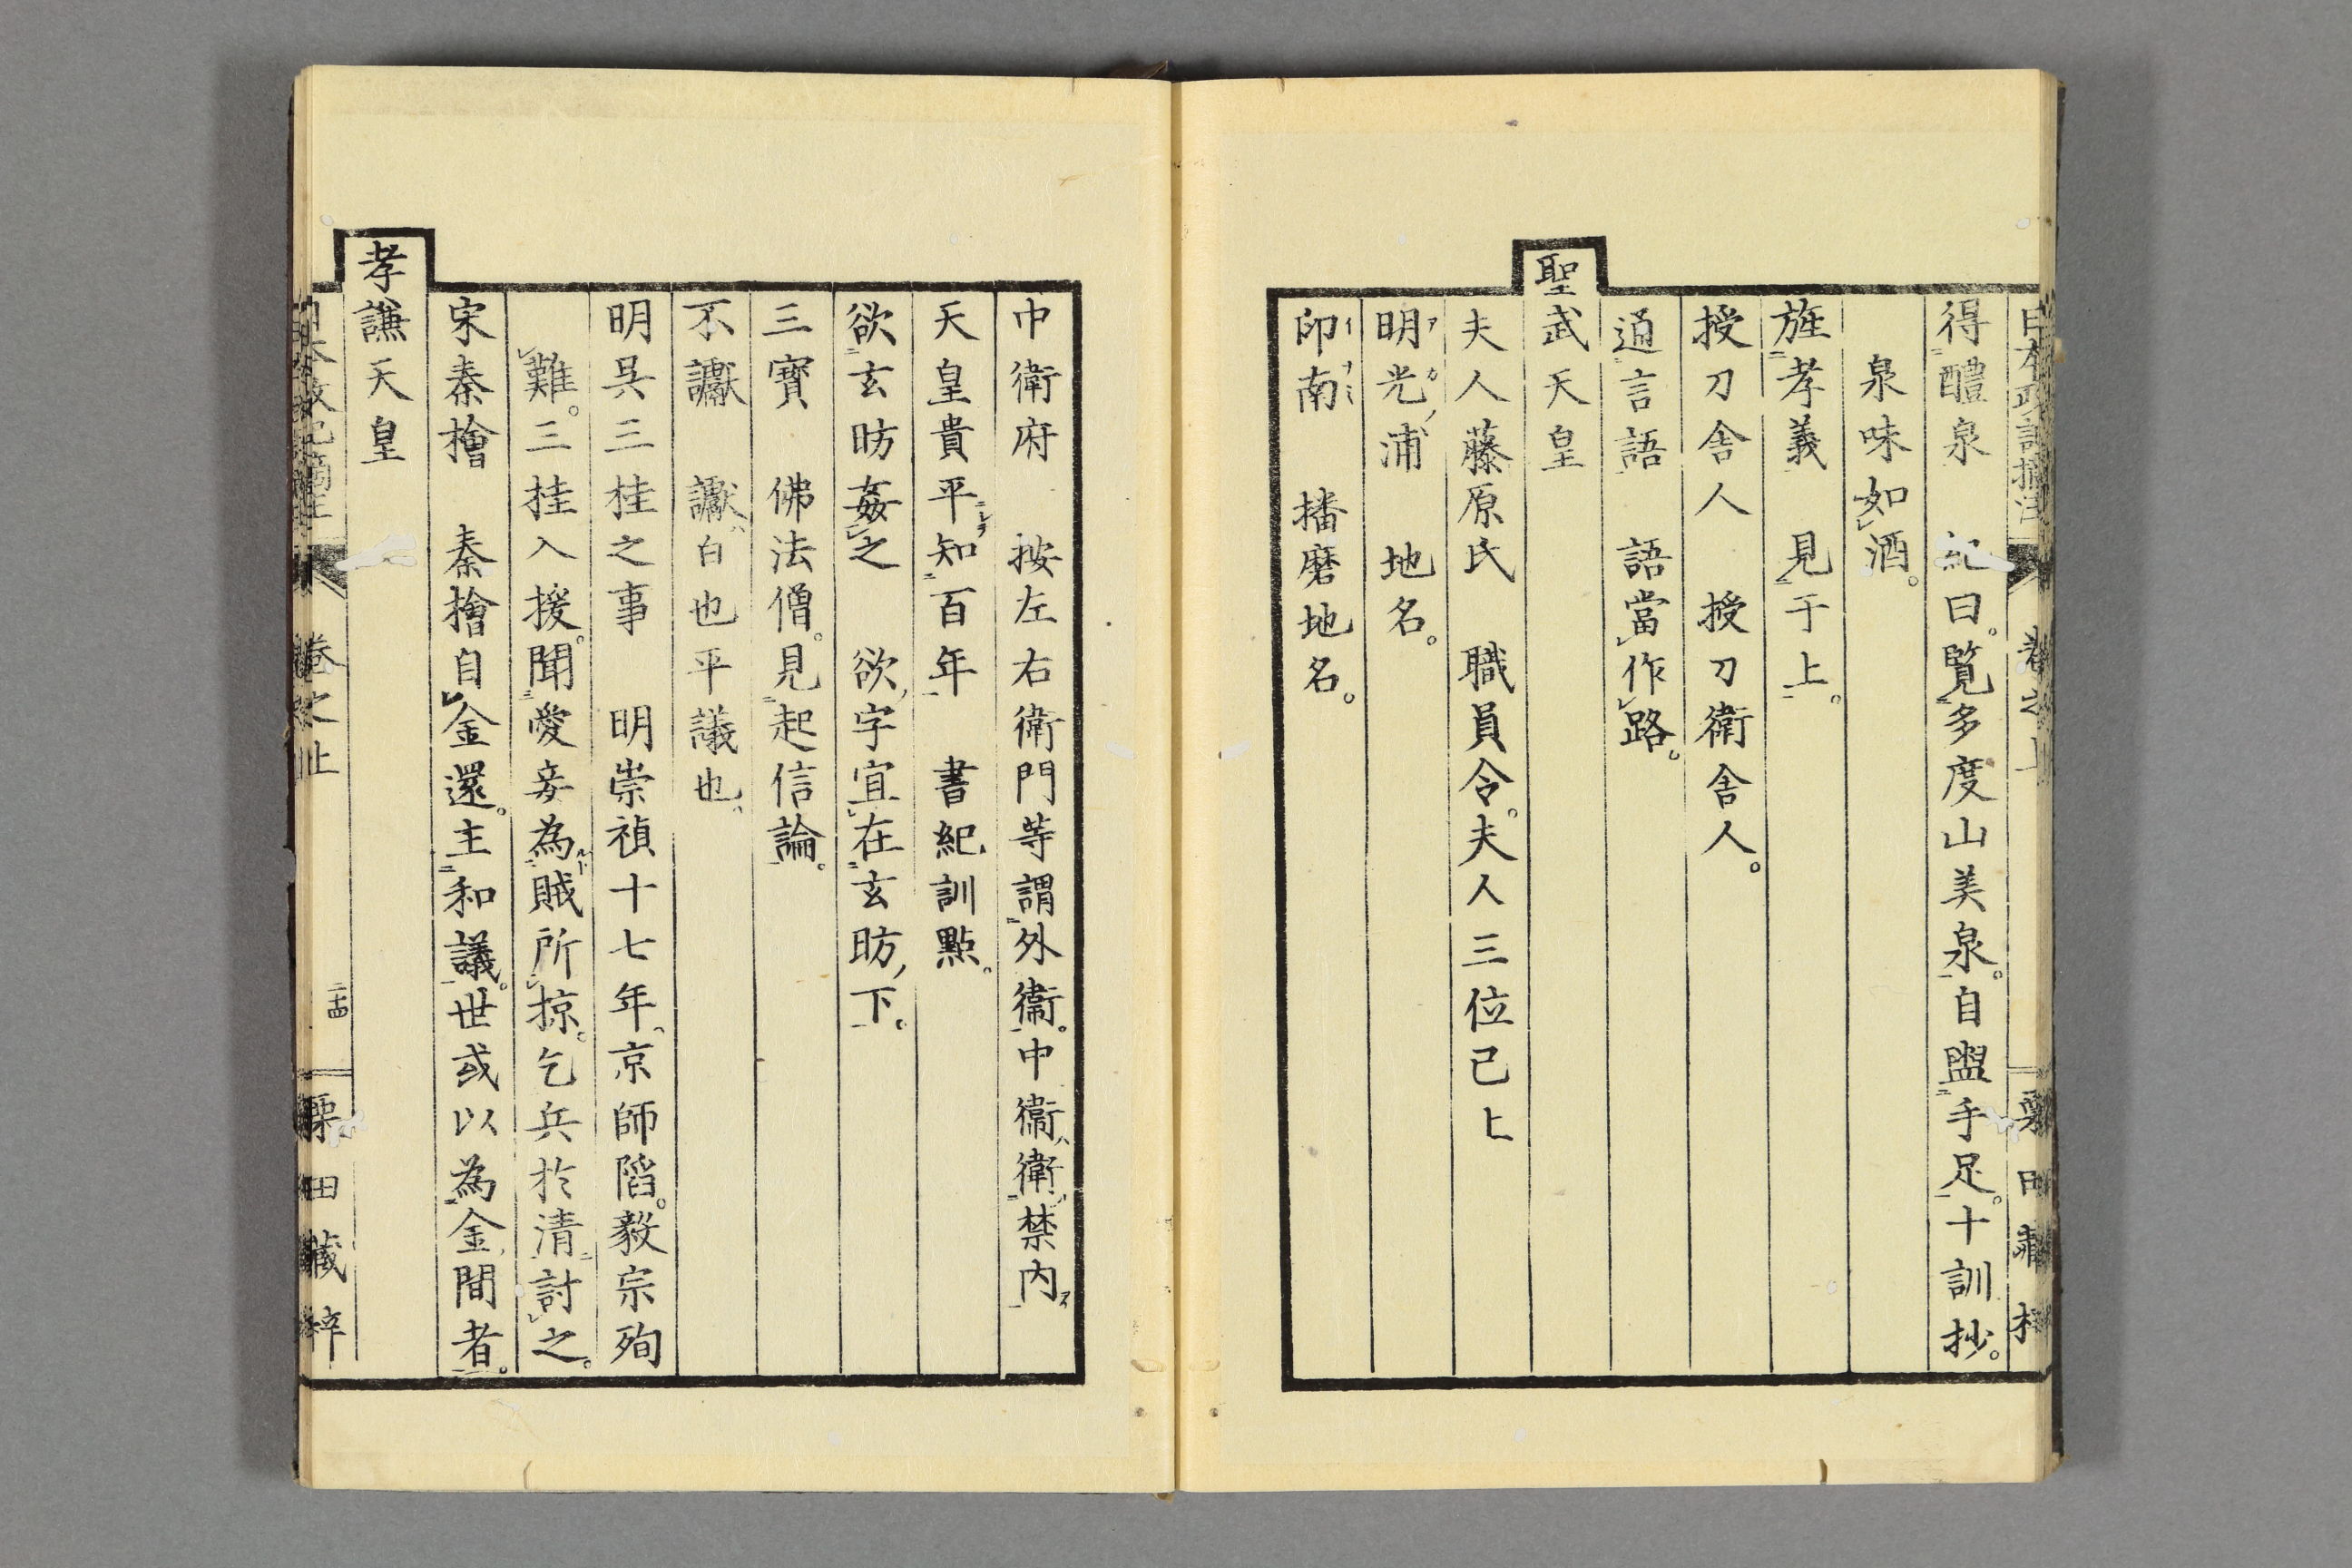 得醴泉　紀曰。覽多度山美泉。自盥手足。十訓抄。
泉味如酒。
旌孝義　見于上。
授刀舍人　授刀衛舍人。
通言語　語當作路。
聖武天皇
夫人藤原氏　職員令。夫人三位已上
明光浦　地名。
印南　播磨地名。
中衛府　按左右衛門等謂外衞。中衞衛禁內
天皇貴平知百年　書紀訓點。
欲玄昉姦之　欲字宜在玄昉下。
三寶　佛法僧。見起信論。
不讞　讞白也平議也
明吳三桂之事　明崇禎十七年京師陷。毅宗殉
難。三桂入援。聞愛妾為賊所掠。乞兵於清討之。
宋秦檜　秦檜自金還。主和議。世或以為金間者。
孝謙天皇
卷之上
二十四
栗田藏梓